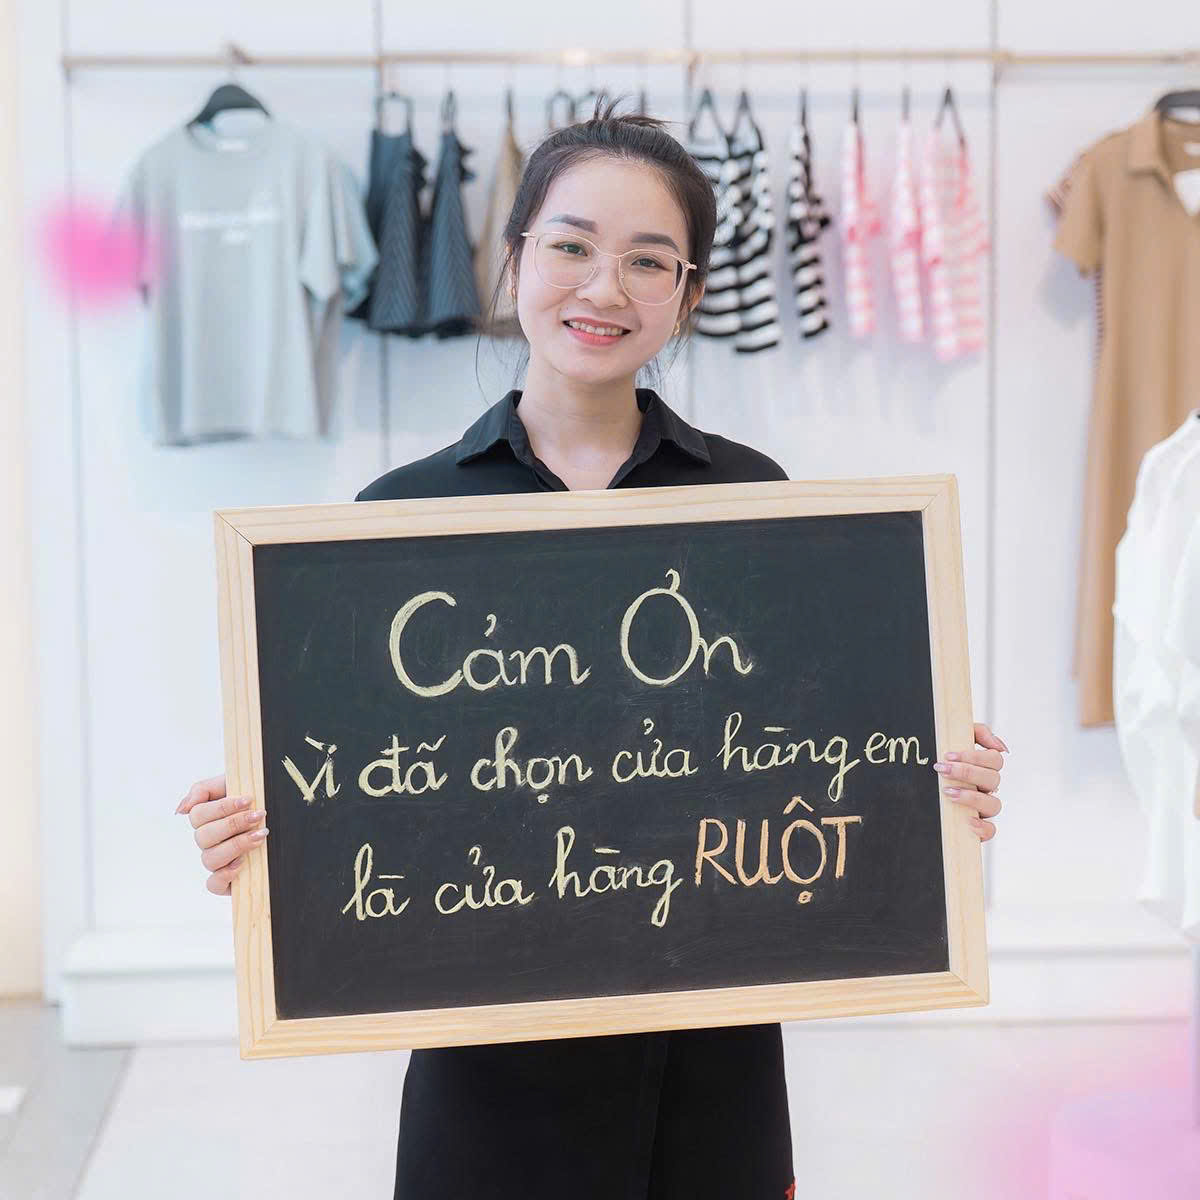 Cảm Ơn
vì đã chọn cửa hàng em
là cửa hàng RUỘT